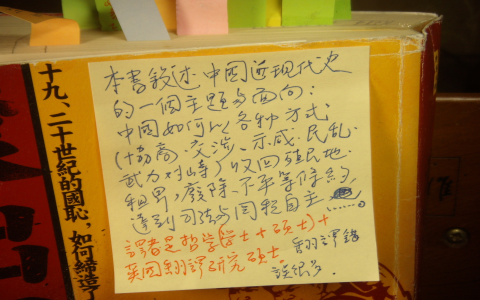 十九、二十世紀的國恥，如何締造了
本書敘述中國近現代史
的一個主題与面向：
中國如何以各种方式
(協商、交涉、示威、民乱、
武力对峙)收回殖民地、
租界，廢除不平等條約，
達到司法与関税自主……。
譯者是哲学(学士+碩士)+
英国翻譯研究碩士。翻譯錯
誤很多.